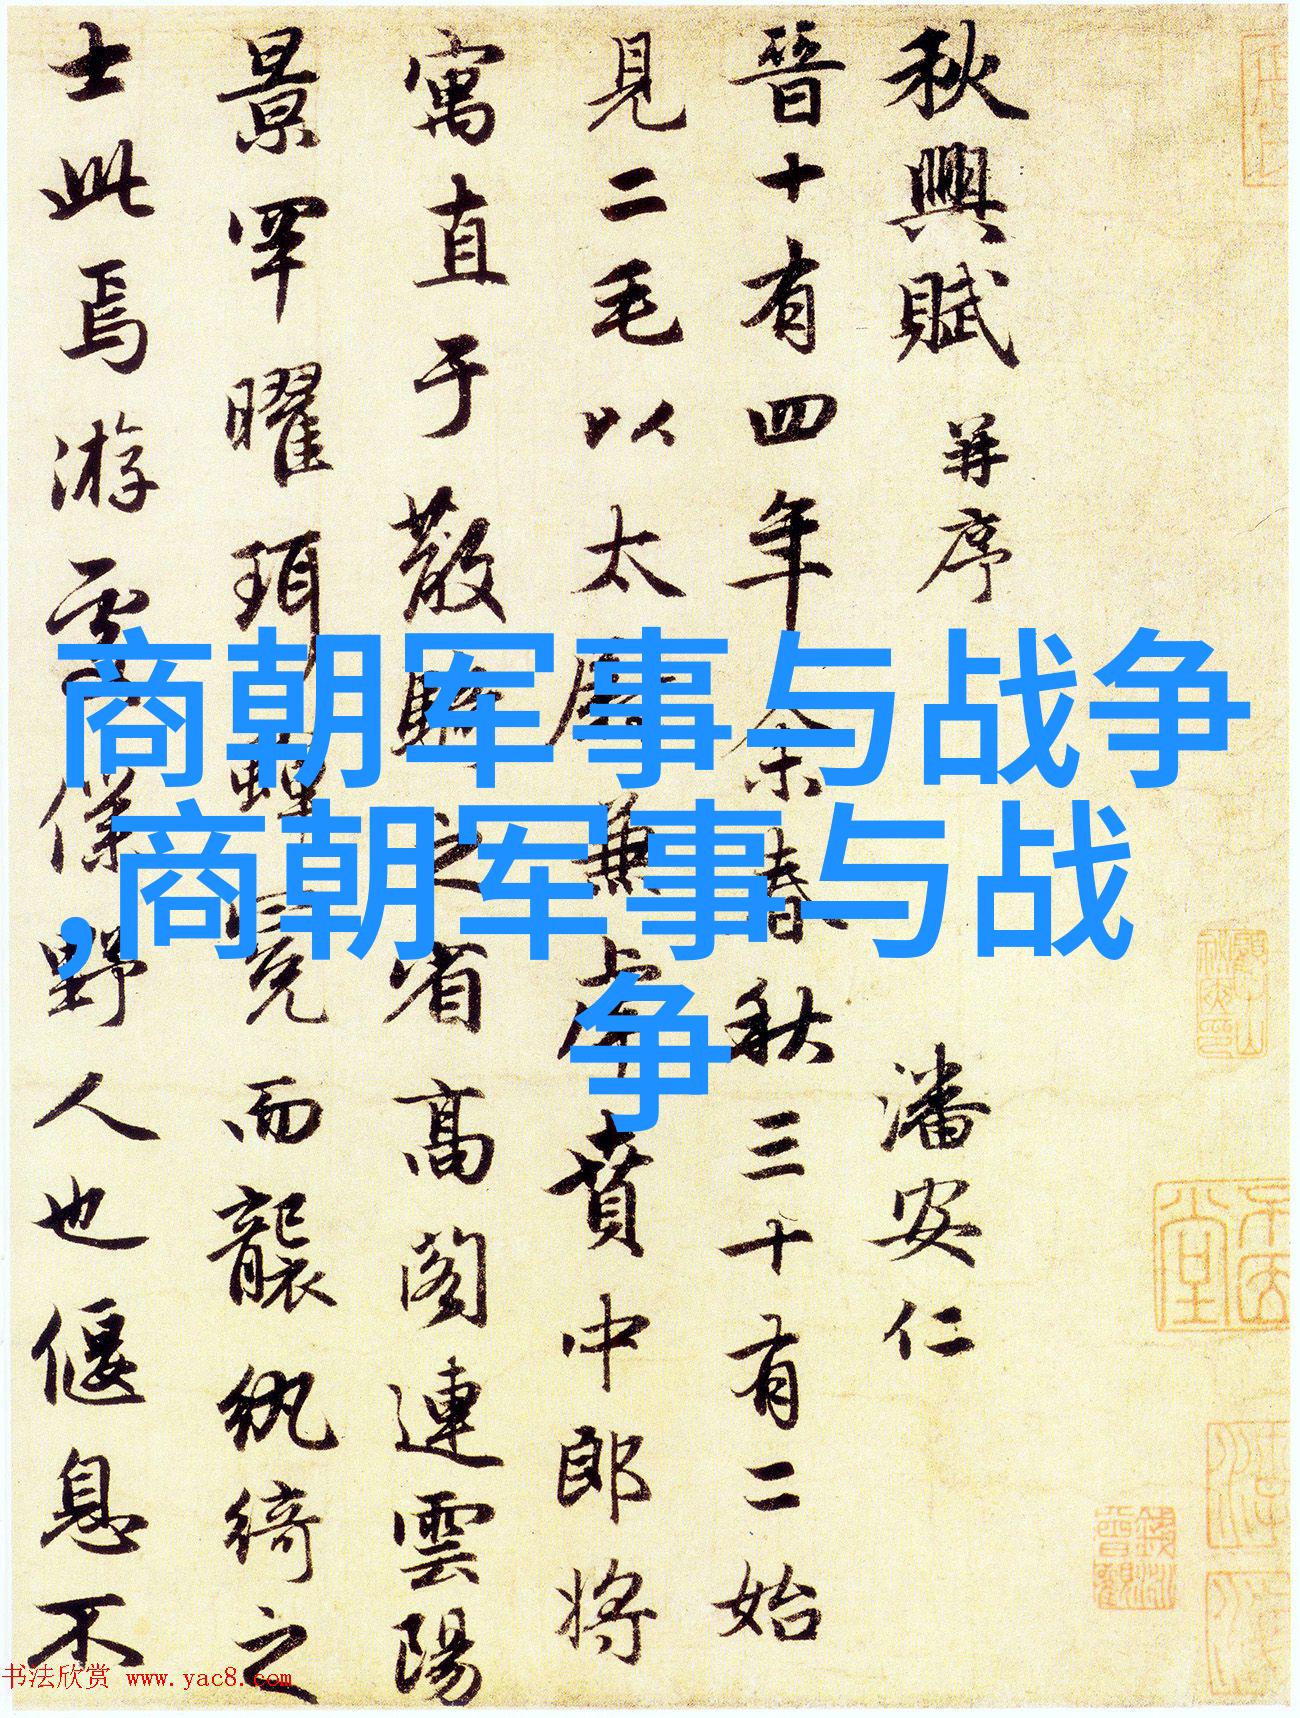 秋興賦 并序 潘安仁
晉十有四年余春秋三十有二始
見二毛以太兼虎賁中郎将
寓直于散騎之省高閣連雲陽
景罕曜珥蟬冕而襲紈綺之
士此焉游處僕野人也偃息不
商朝军事与战争
,商朝军事与战
争
书法欣赏 www.yac8.com